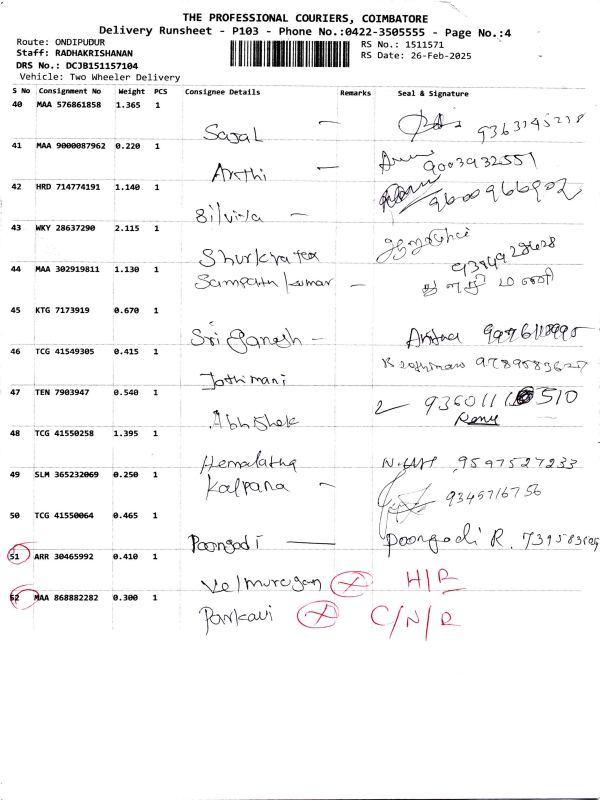 THE PROFESSIONAL COURIERS, COIMBATORE
Delivery Runsheet - P103 - Phone No.:0422-3505555 - Page No.:4
Route: ONDIPUDUR
RS No.: 1511571
Staff: RADHAKRISHANAN
RS Date: 26-Feb-2025
DRS No.: DCJB151157104
Vehicle: Two Wheeler Delivery
S No Consignment No Weight PCS Consignee Details Remarks Seal & Signature
40 MAA 576861858 1.365 1
Sajal —
41 MAA 9000087962 0.220 1
Arthi — 9003932551
42 HRD 714774191 1.140 1
Silviya — 9600966902
43 WKY 28637290 2.115 1
44 MAA 302919811 1.130 1
Sampath kumar — மணி
45 KTG 7173919 0.670 1
Sri Ganesh —
46 TCG 41549305 0.415 1
Jothimani
47 TEN 7903947 0.540 1
Abhishek 510
48 TCG 41550258 1.395 1
Hemalatha 9597527233
49 SLM 365232069 0.250 1
Kalpana — 9345716756
50 TCG 41550064 0.465 1
Poongodi — Poongodi R.
51 ARR 30465992 0.410 1
Velmurugan X H/R
52 MAA 868882282 0.300 1
Parkavi X C/N/R